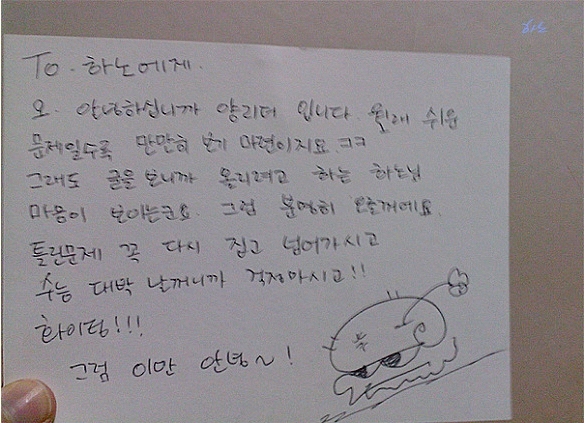 하노
To. 하노에게.
오. 안녕하십니까 양리더 입니다. 원래 쉬운
문제일수록 만만히 보기 마련이지요 ㅋㅋ
그래도 글을 보니까 올리려고 하는 하노님
마음이 보이는군요. 그럼 분명히 오를꺼에요.
틀린문제 꼭 다시 집고 넘어가시고
수능 대박 날꺼니까 걱정마시고!!
화이팅!!!
그럼 이만 안녕~!